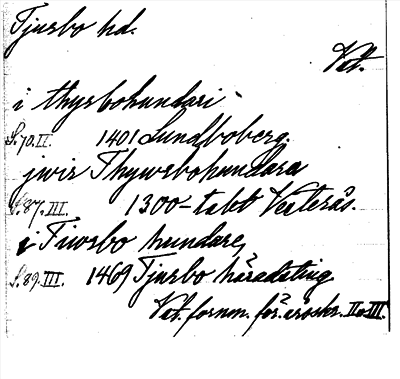 Tjurbo hd.
Vstl.
i thyrbohundari
S. 70. II. 1401 Lundboberg.
jwir Thywrbohundara
S. 87. III. 1300-talet Vesterås.
i Tiwrbo hundare,
S. 89. III. 1469 Tjurbo häradsting
Vstl. fornm. för. årsskr. II o III.